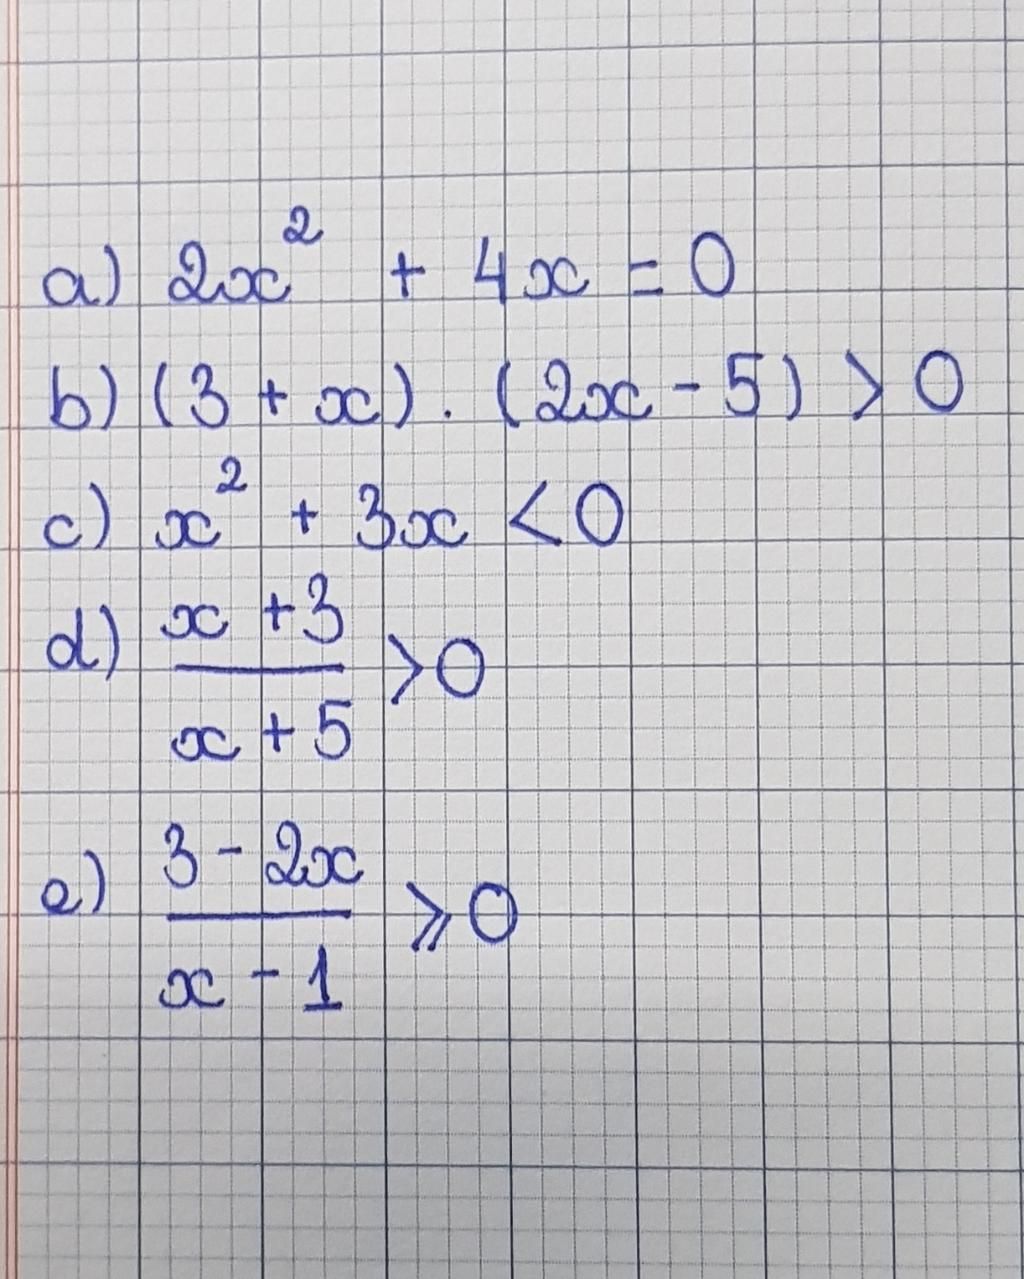 a) 2x² + 4x = 0
b) (3 + x) . (2x - 5) > 0
c) x² + 3x < 0
d) (x + 3)/(x + 5) > 0
e) (3 - 2x)/(x - 1) ⩾ 0